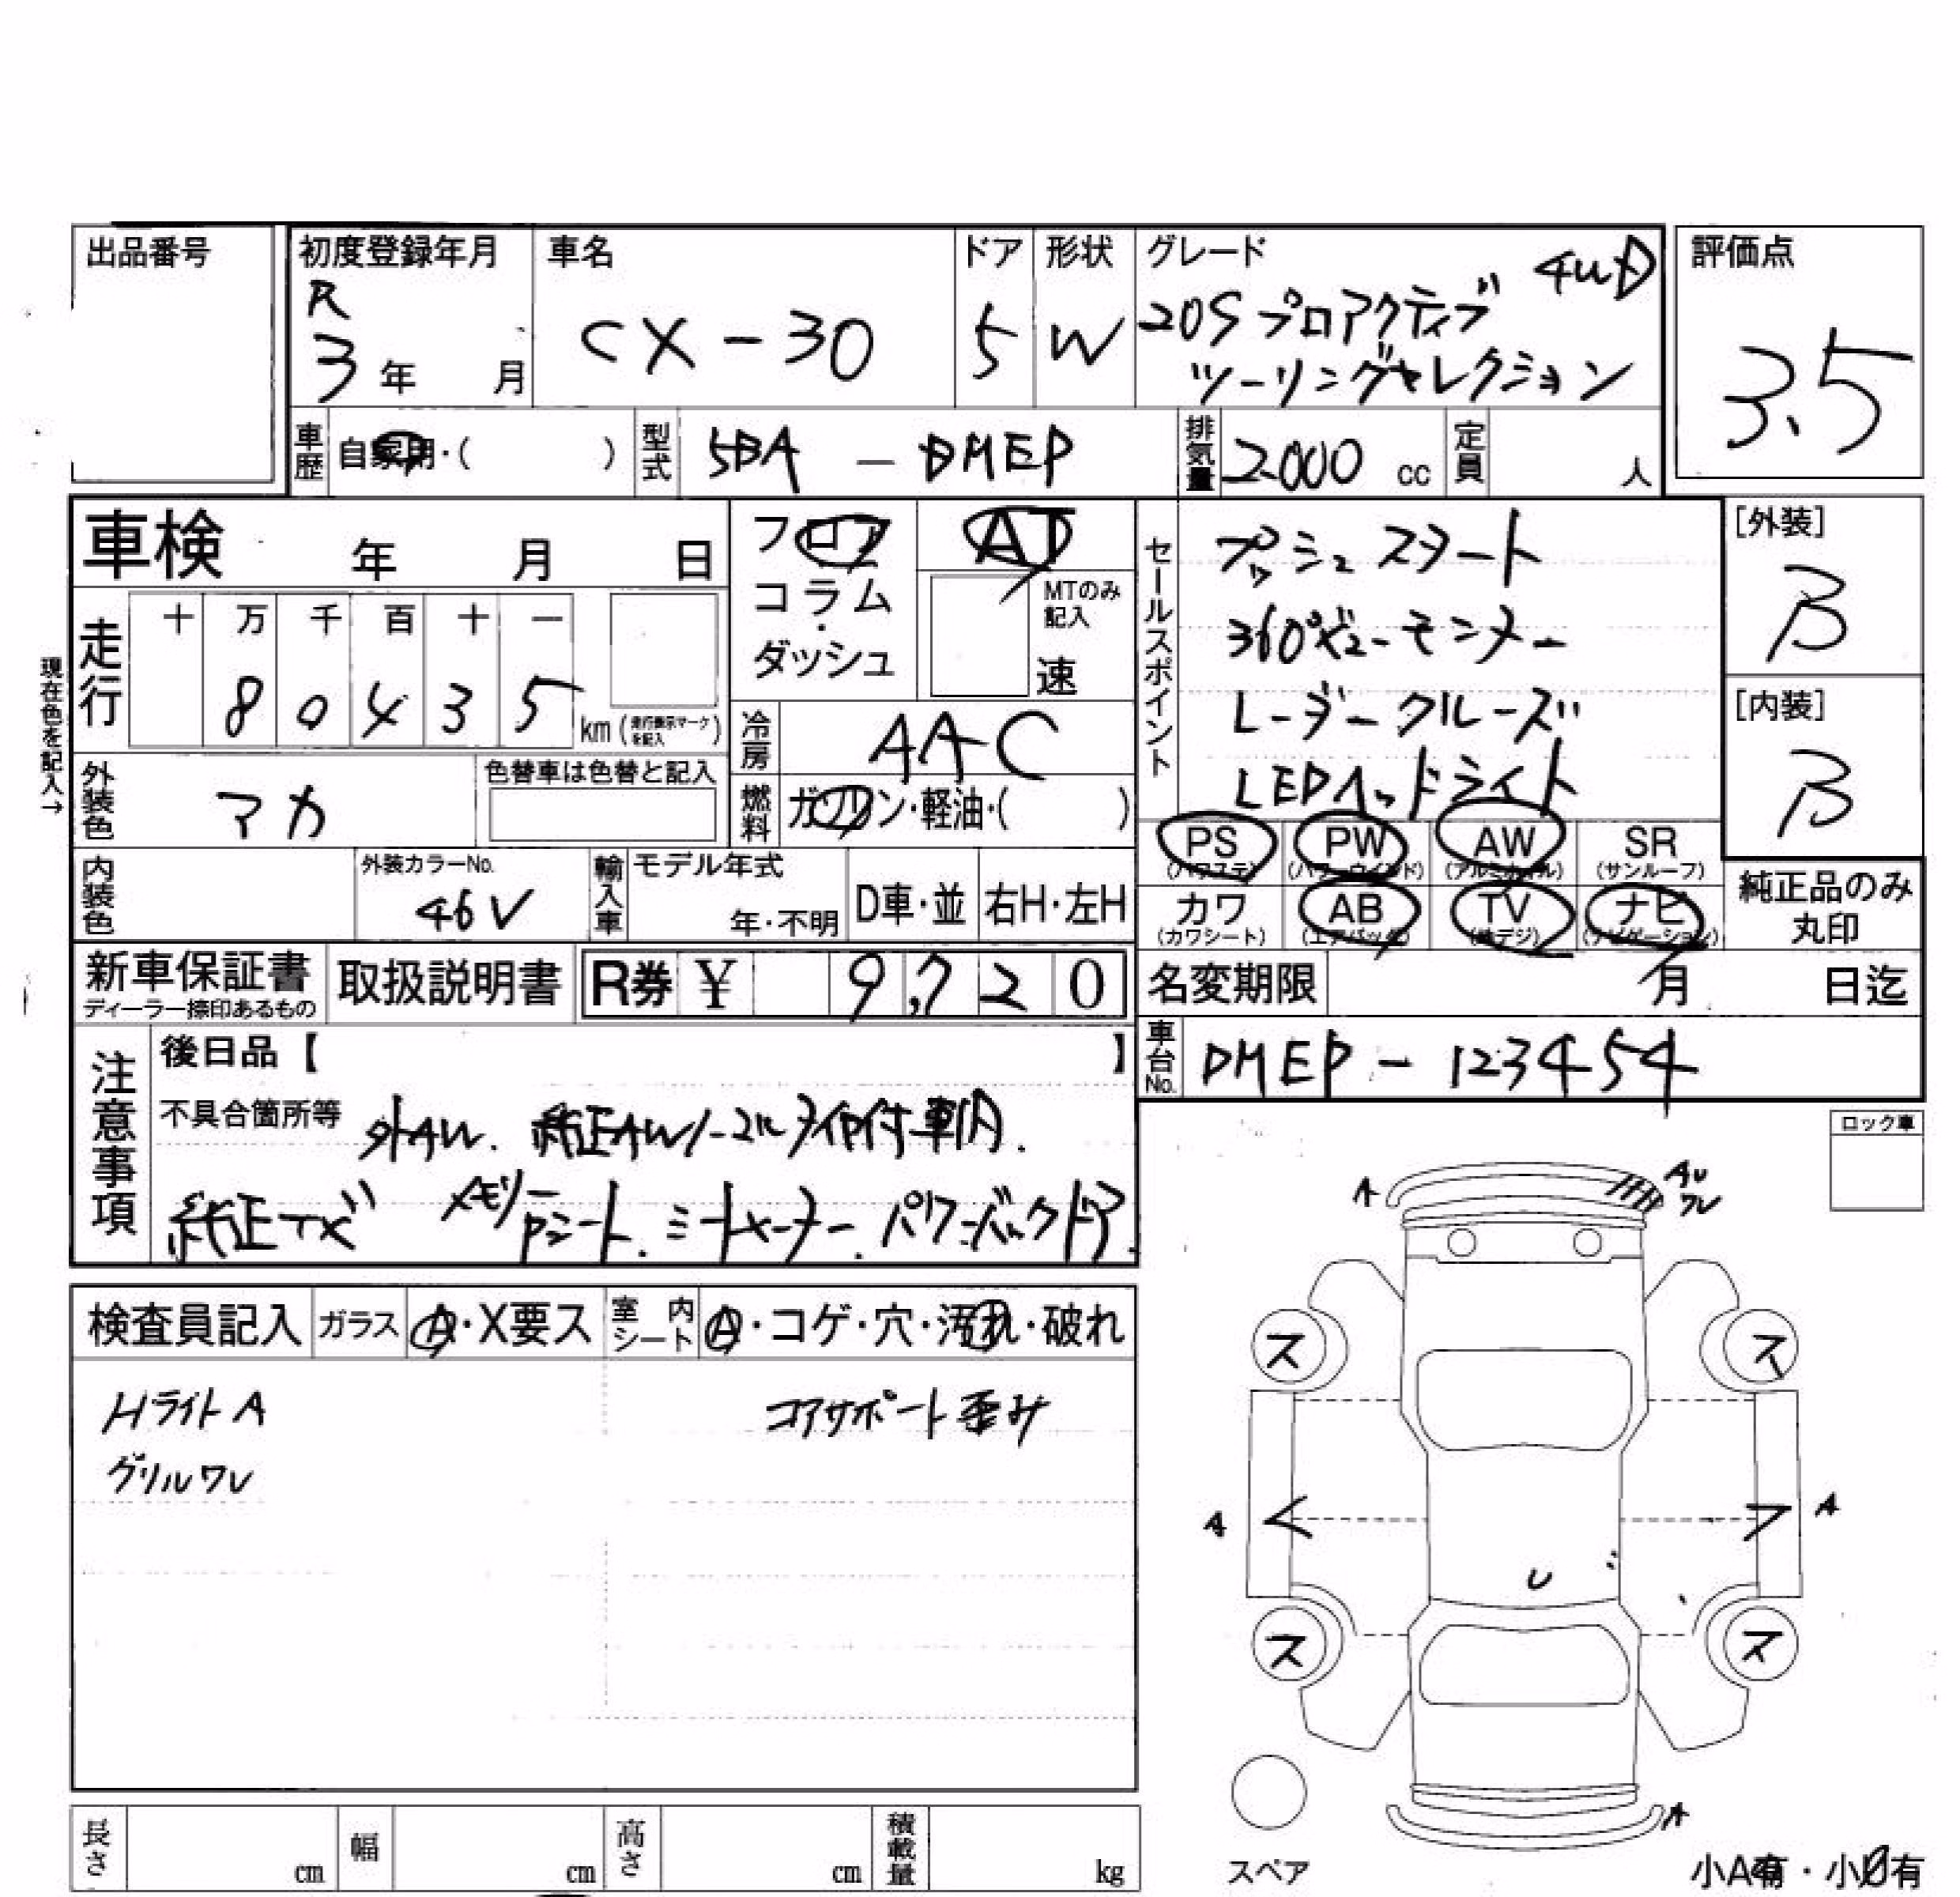 出品番号
初度登録年月 R 3年 月
車名 CX-30
ドア 5
形状 W
グレード 4WD
20S プロアクティブ
ツーリングセレクション
評価点 3.5
車歴 自家用・( )
型式 5BA - DMEP
排気量 2000 cc
定員 人
車検 年 月 日
フロア
コラム・
ダッシュ
AT
MTのみ記入
速
セールスポイント
プッシュスタート
360°ビューモニター
レーダークルーズ
LEDヘッドライト
[外装] B
[内装] B
現在色を記入→
走行 十 万 千 百 十 一
8 0 4 3 5 km (走行表示マークを記入)
冷房 AAC
外装色 マカ
色替車は色替と記入
燃料 ガソリン・軽油・( )
PS (パワステ) PW (パワーウインド) AW (アルミホイル) SR (サンルーフ)
カワ (カワシート) AB (エアバッグ) TV (地デジ) ナビ (ナビゲーション)
純正品のみ丸印
内装色
外装カラーNo. 46V
輸入車 モデル年式 年・不明 D車・並 右H・左H
新車保証書 ディーラー捺印あるもの
取扱説明書
R券 ¥ 9,720
名変期限 月 日迄
車台No. DMEP - 123454
注意事項
後日品【 】
不具合箇所等 外AW. 純正AWノーマルタイヤ付車内.
純正TVメモリーPシート.ミートメーター.パワーバックドア.
ロック車
検査員記入 ガラス A・X要ス 室内シート A・コゲ・穴・汚れ・破れ
Hライト A
コアサポート歪み
グリルワレ
A
AU
ワレ
ス ス
A A
U
ス ス
A
スペア
小A有・小U有
長さ cm 幅 cm 高さ cm 積載量 kg